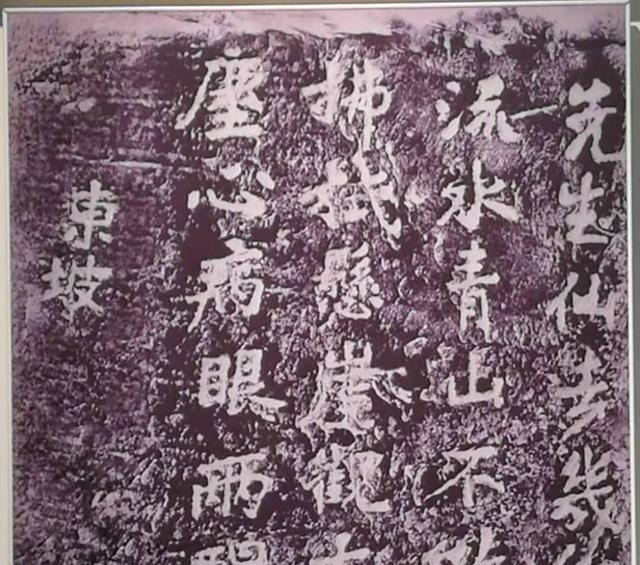 先生仙去幾
流水青山不
拂拭懸崖觀
塵心病眼兩
東坡